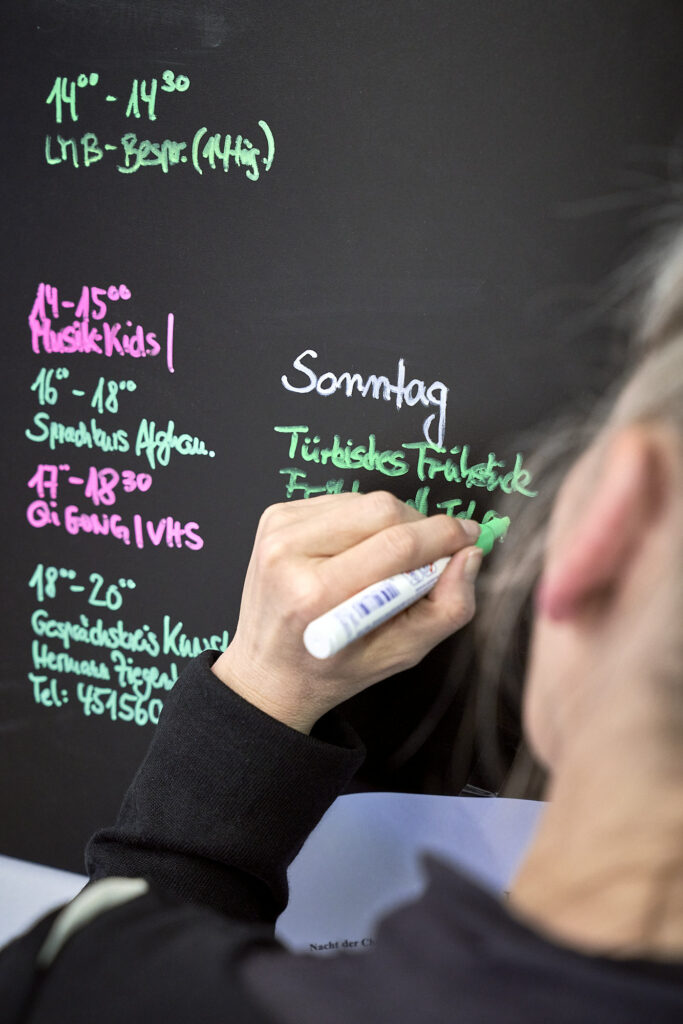 14⁰⁰ - 14³⁰
LMB-Bespr. (14täg.)
14-15⁰⁰
Musik-Kids |
16⁰⁰ - 18⁰⁰
Sprachkurs Afghan.
17⁰⁰ - 18³⁰
Qi GONG | VHS
18⁰⁰ - 20⁰⁰
Gesprächskreis Kunst
Hermann
Tel: 451560
Sonntag
Türkisches Frühstück
Nacht der